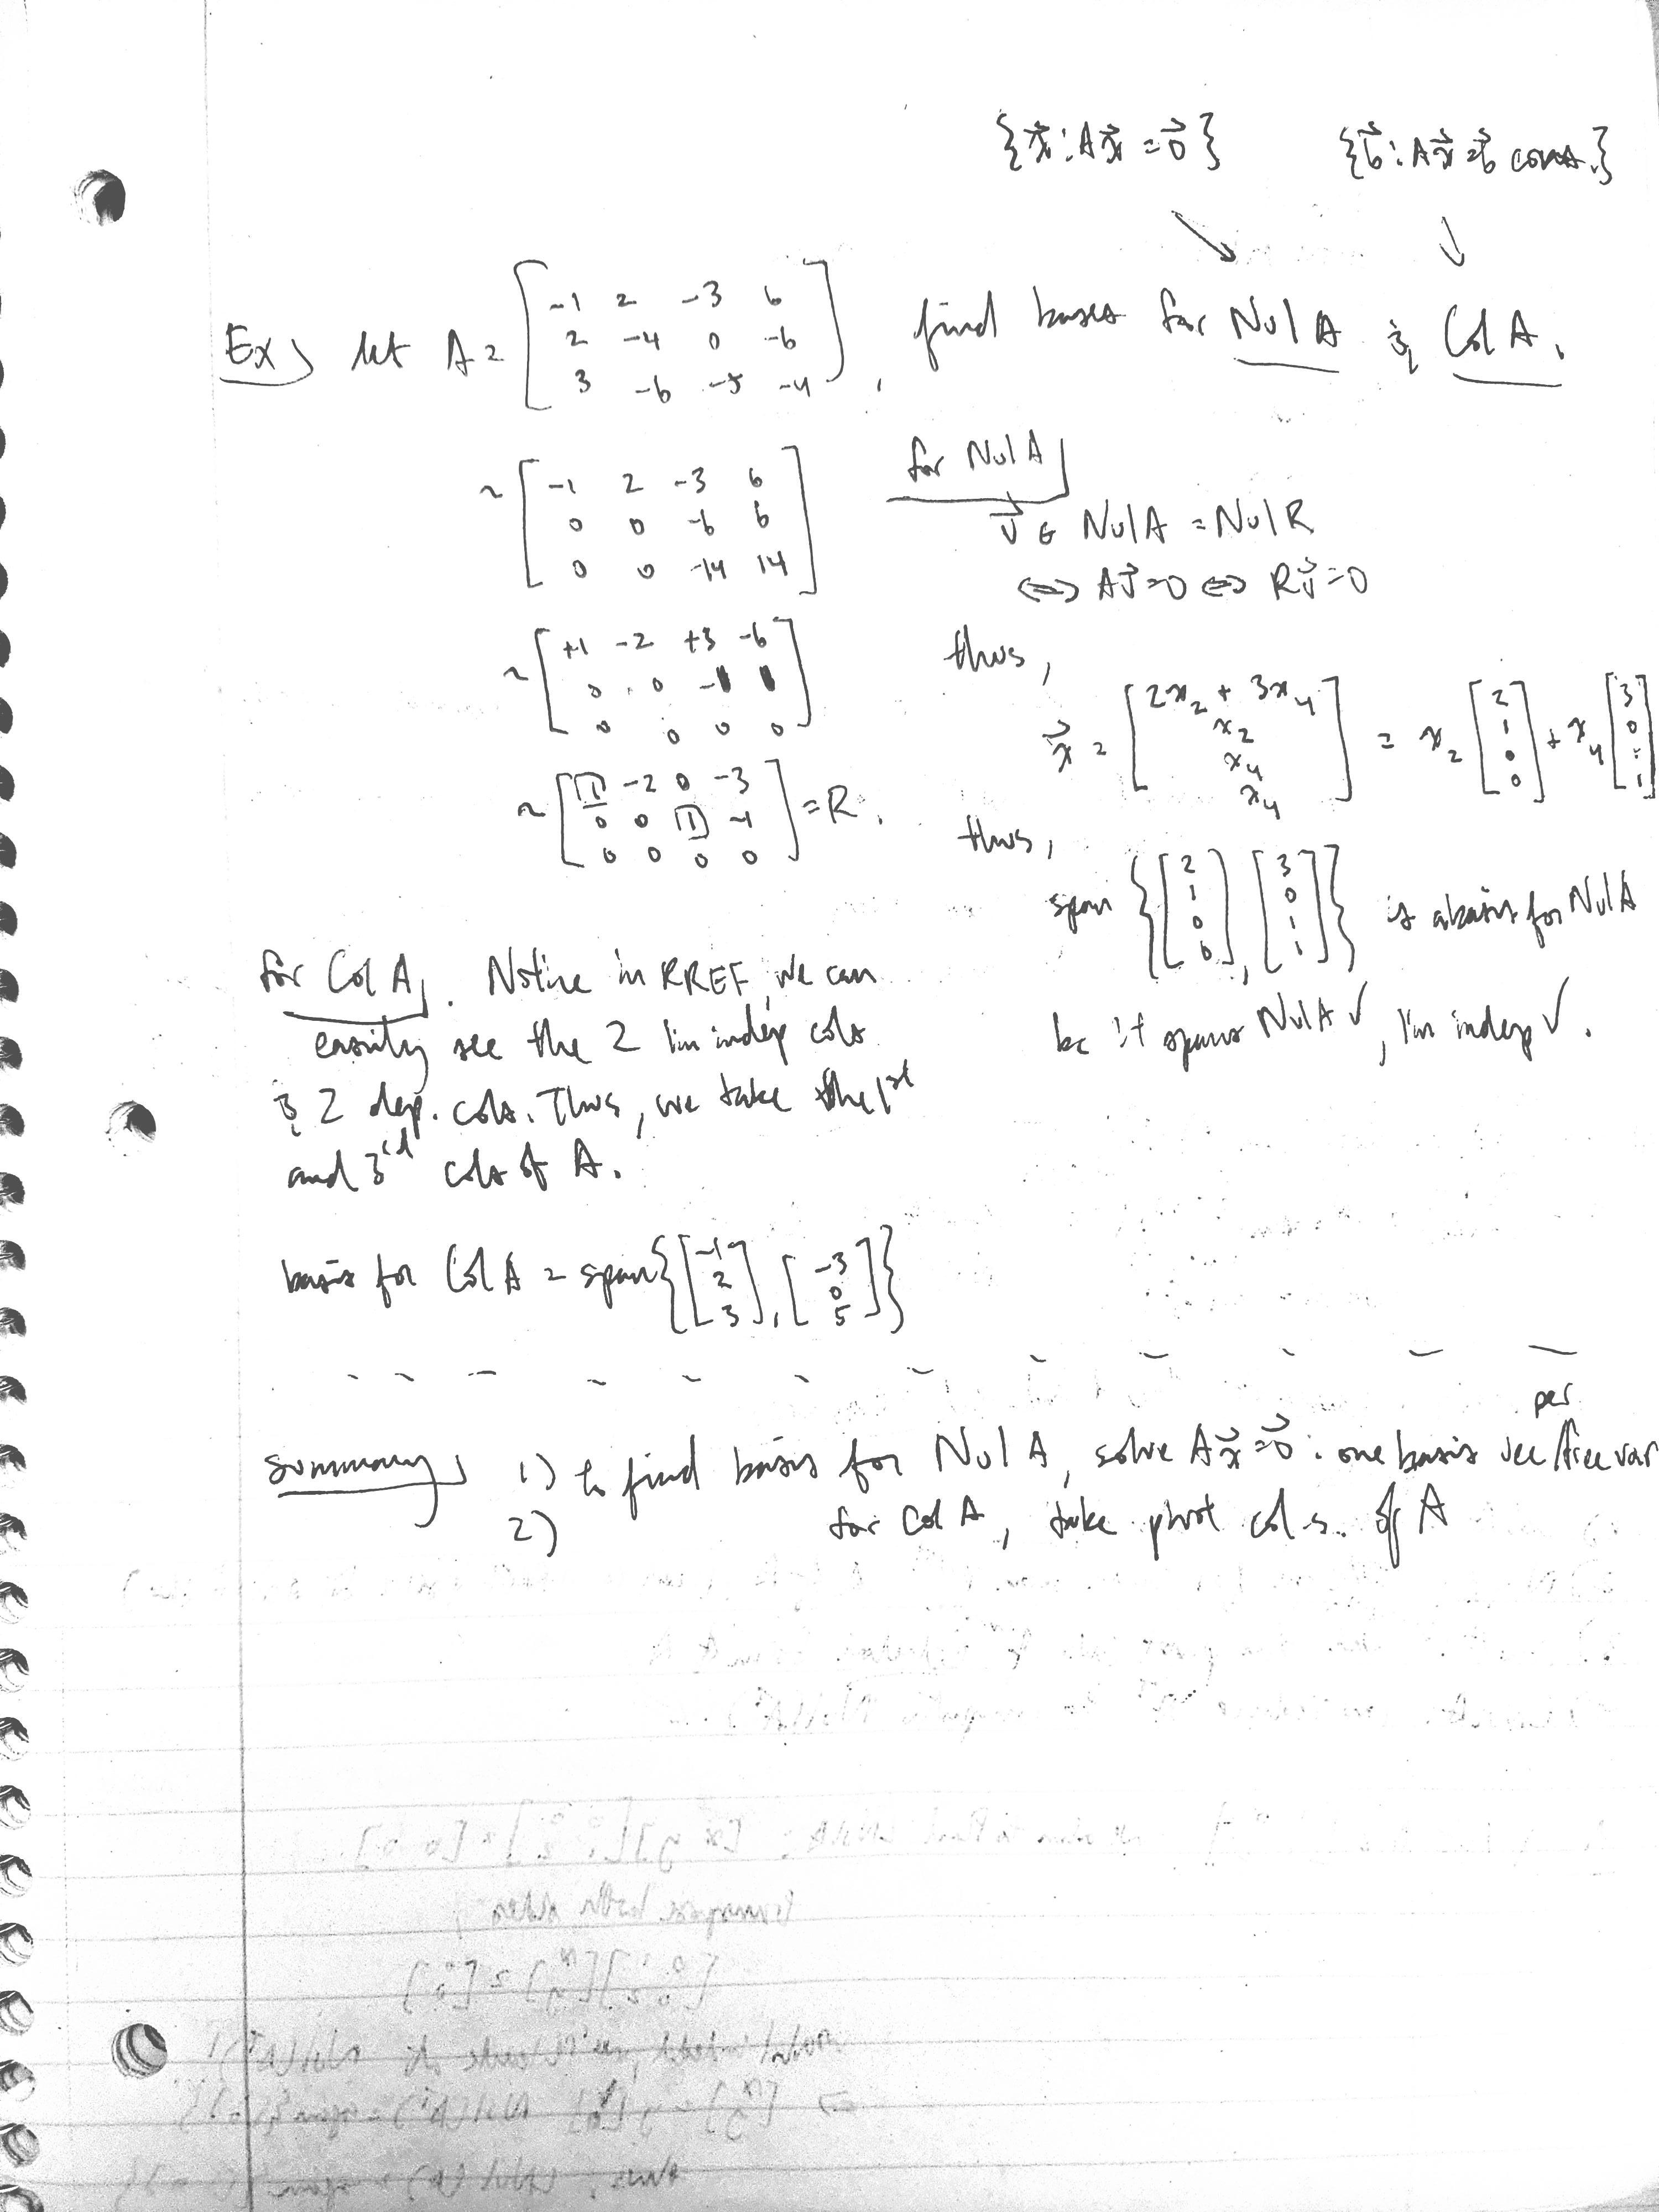 {x⃗ : Ax⃗ = 0⃗}   {b⃗ : Ax⃗ = b⃗ cons.}
↘   ↓
Ex) let A = [ -1 2 -3 6
2 -4 0 -6
3 -6 -5 -4 ], find bases for Nul A & Col A.
~ [ -1 2 -3 6
0 0 -6 6
0 0 -14 14 ]
~ [ +1 -2 +3 -6
0 0 -1 1
0 0 0 0 ]
~ [ 1 -2 0 -3
0 0 1 -1
0 0 0 0 ] = R.
for Nul A)
v⃗ ∈ Nul A = Nul R
⇔ Av⃗ = 0 ⇔ Rv⃗ = 0
thus,
x⃗ = [ 2x₂ + 3x₄
x₂
x₄
x₄ ] = x₂ [ 2 1 0 0 ] + x₄ [ 3 0 1 1 ]
thus,
span { [ 2 1 0 0 ], [ 3 0 1 1 ] } is a basis for Nul A
bc it spans Nul A ✓, lin indep ✓.
for Col A). Notice in RREF, we can
easily see the 2 lin indep cols
& 2 dep. cols. Thus, we take the 1st
and 3rd cols of A.
basis for Col A = span { [ -1 2 3 ], [ -3 0 5 ] }
summary) 1) to find basis for Nul A, solve Ax⃗ = 0⃗ : one basis vec per free var
2) for Col A, take pivot cols. of A